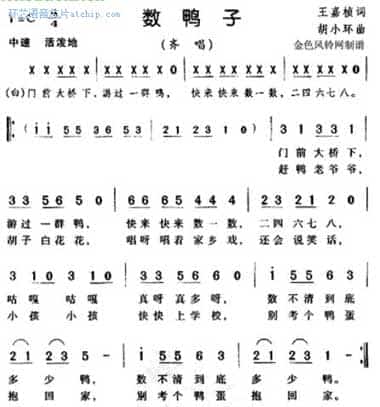 研艺语音卡片atchip.com
1=C 4
数 鸭 子
王嘉桢词
胡小环曲
中速 活泼地
(齐 唱)
金色风铃网制谱
X X X X X | X X X X X | X X X X X X X | X X X X X
(白)门前大桥下,游过一群鸭, 快来快来数一数,二四六七八。
( i i 5 5 3 6 5 3 | 2 1 2 3 1 0 ) | 3 1 3 3 1
门 前 大 桥 下,
赶 鸭 老 爷 爷,
3 3 5 5 6 5 0 | 6 6 6 5 4 4 4 | 2 3 2 1 2 0
游过一群鸭, 快来快来数一数, 二四六七八。
胡子白花花, 唱呀唱着家乡戏, 还会说笑话,
3 1 0 3 1 0 | 3 3 1 3 3 1 0 | i 5 5 6 5 6
咕嘎 咕嘎 真呀真多呀, 数不清到底
小孩 小孩 快快上学校, 别考个鸭蛋
2 1 2 3 5 - | i 5 5 6 5 6 | 2 1 2 3 1 -
多 少 鸭, 数不清到底 多 少 鸭.
抱 回 家, 别考个鸭蛋 抱 回 家.